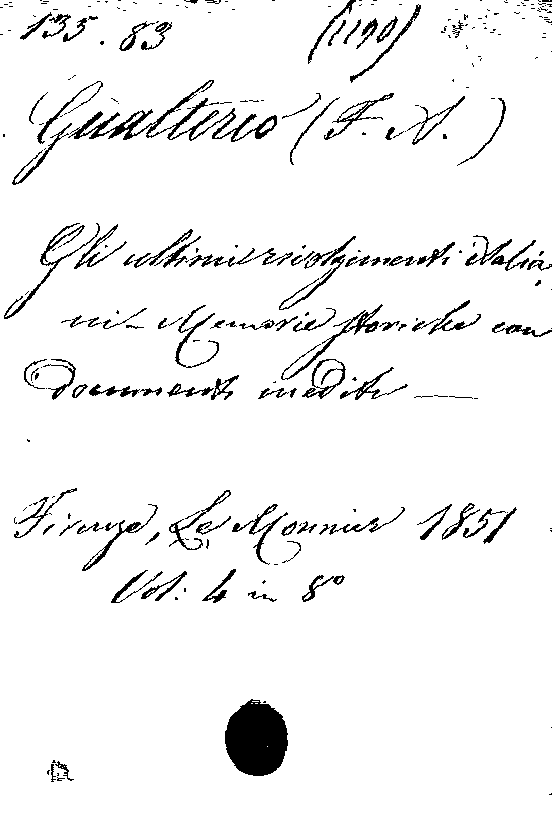 135.83 (1190)
Gualterio (F. A.)
Gli ultimi rivolgimenti italia
ni - Memorie storiche con
documenti inediti —
Firenze, Le Monnier 1851
Vol: 4 in 8º